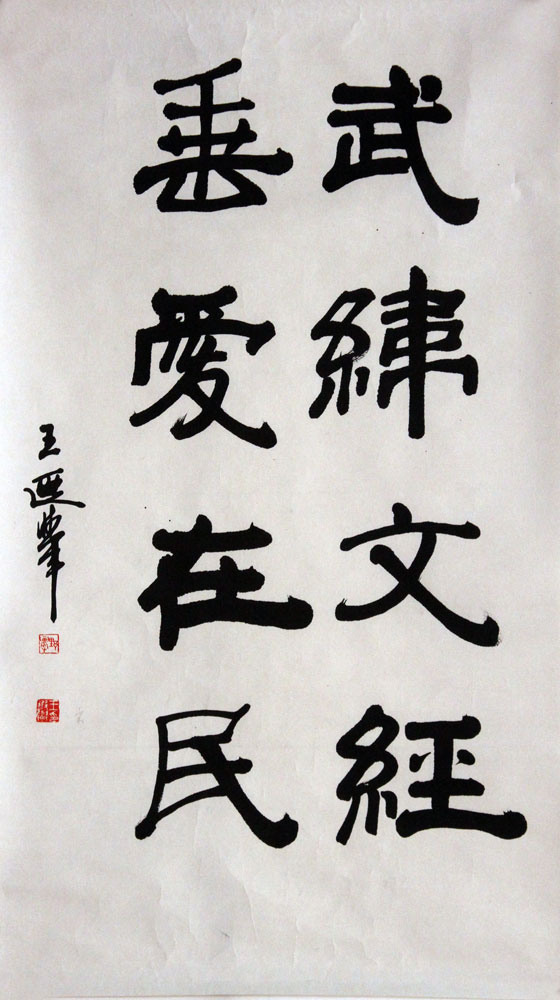 武緯文經
垂愛在民
王遐舉